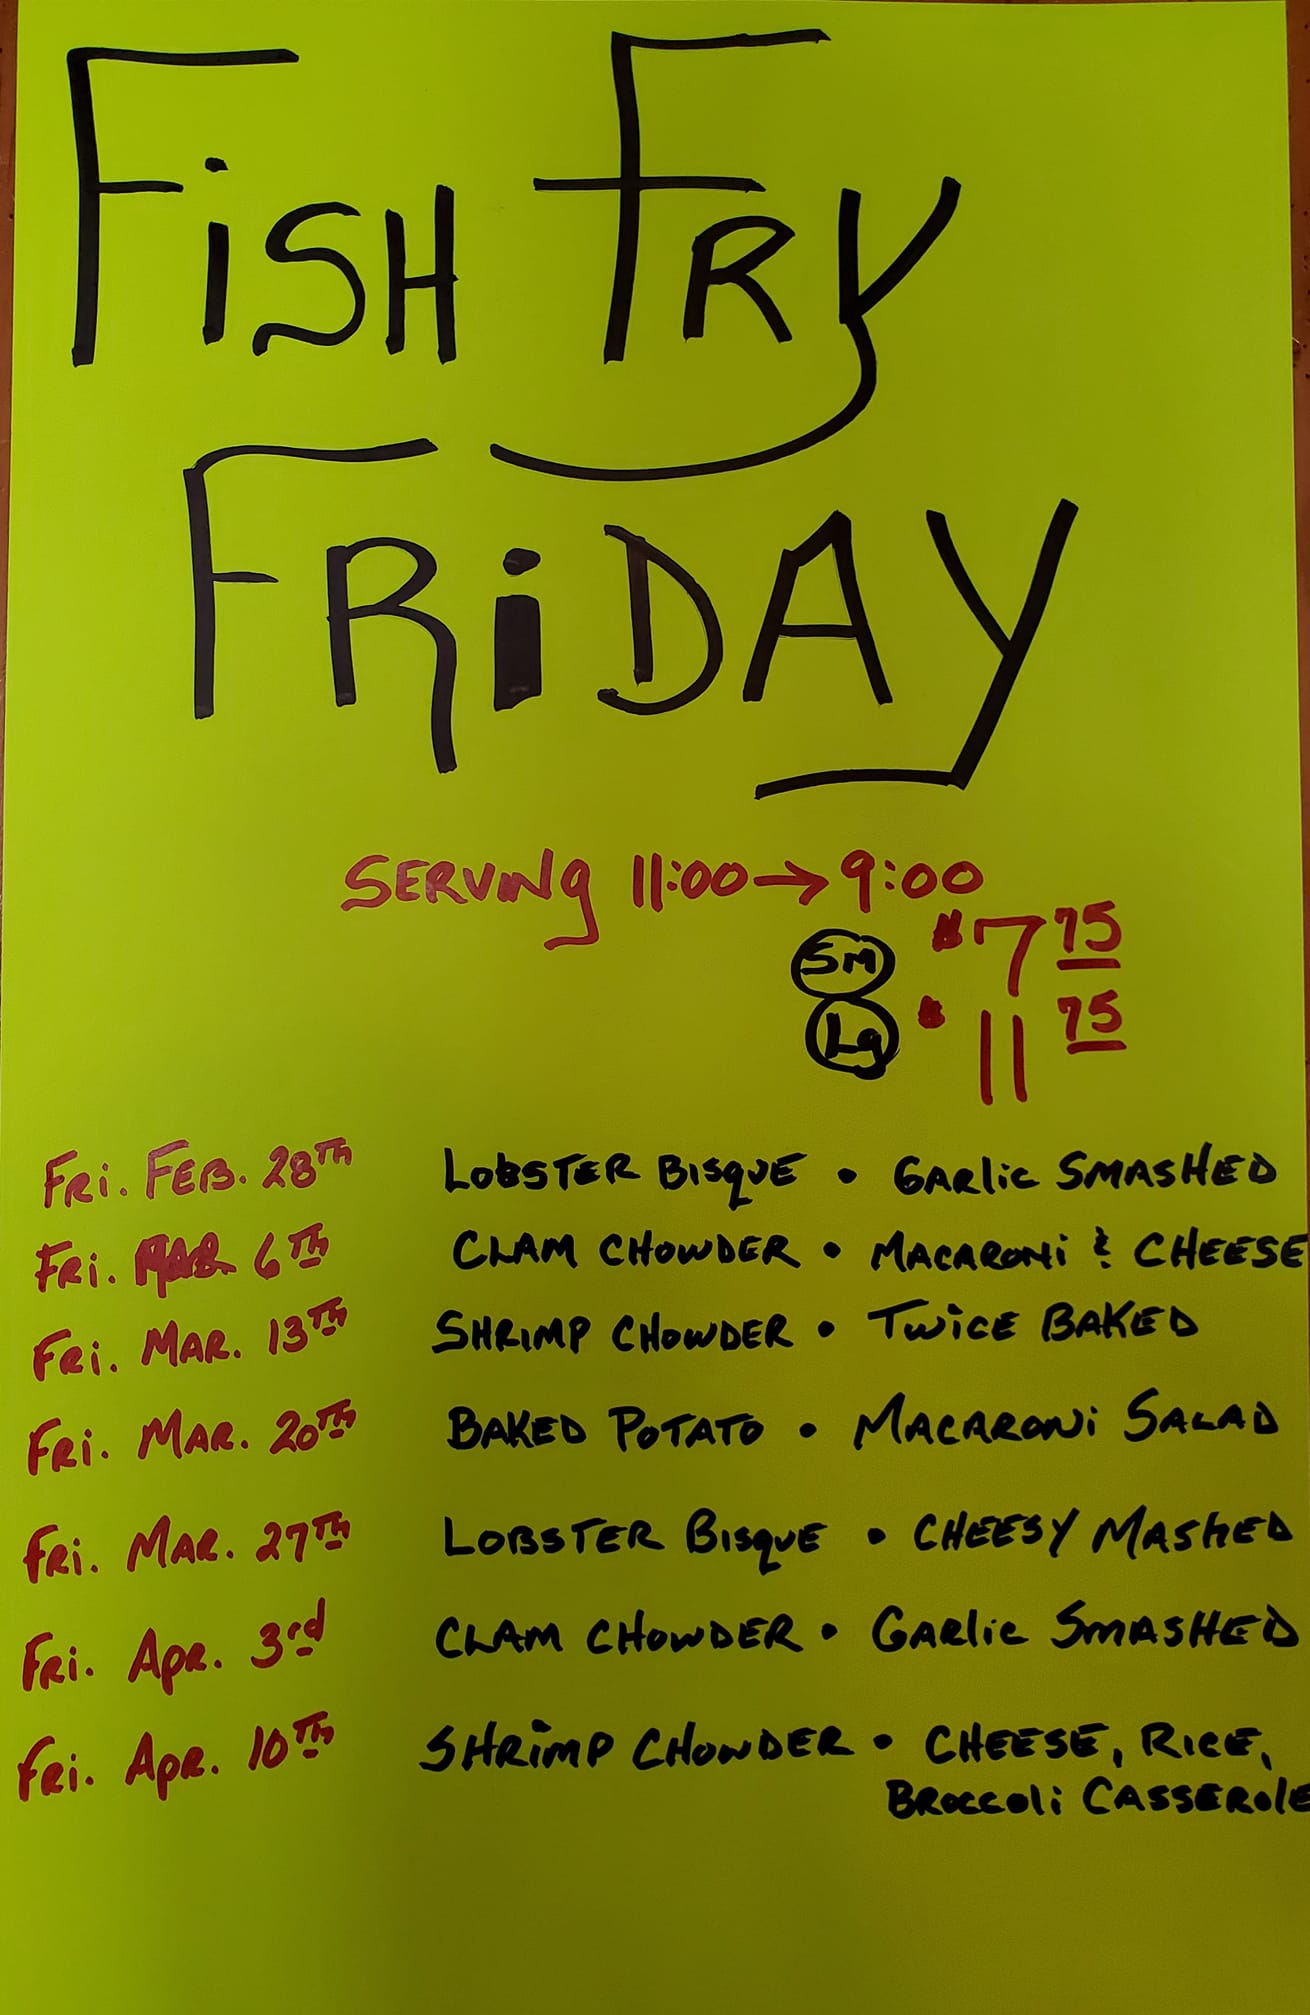 FiSH FRY
FRiDAY
SERVING 11:00→9:00
SM $7 75
LG $11 75
FRi. FEB. 28TH LOBSTER BISQUE • GARLIC SMASHED
FRi. MAR. 6TH CLAM CHOWDER • MACARONi & CHEESE
FRi. MAR. 13TH SHRIMP CHOWDER • TWICE BAKED
FRi. MAR. 20TH BAKED POTATO • MACARONi SALAD
FRi. MAR. 27TH LOBSTER BISQUE • CHEESY MASHED
FRi. APR. 3rd CLAM CHOWDER • GARLIC SMASHED
FRi. APR. 10TH SHRIMP CHOWDER • CHEESE, RICE,
BROCCOLi CASSEROLE